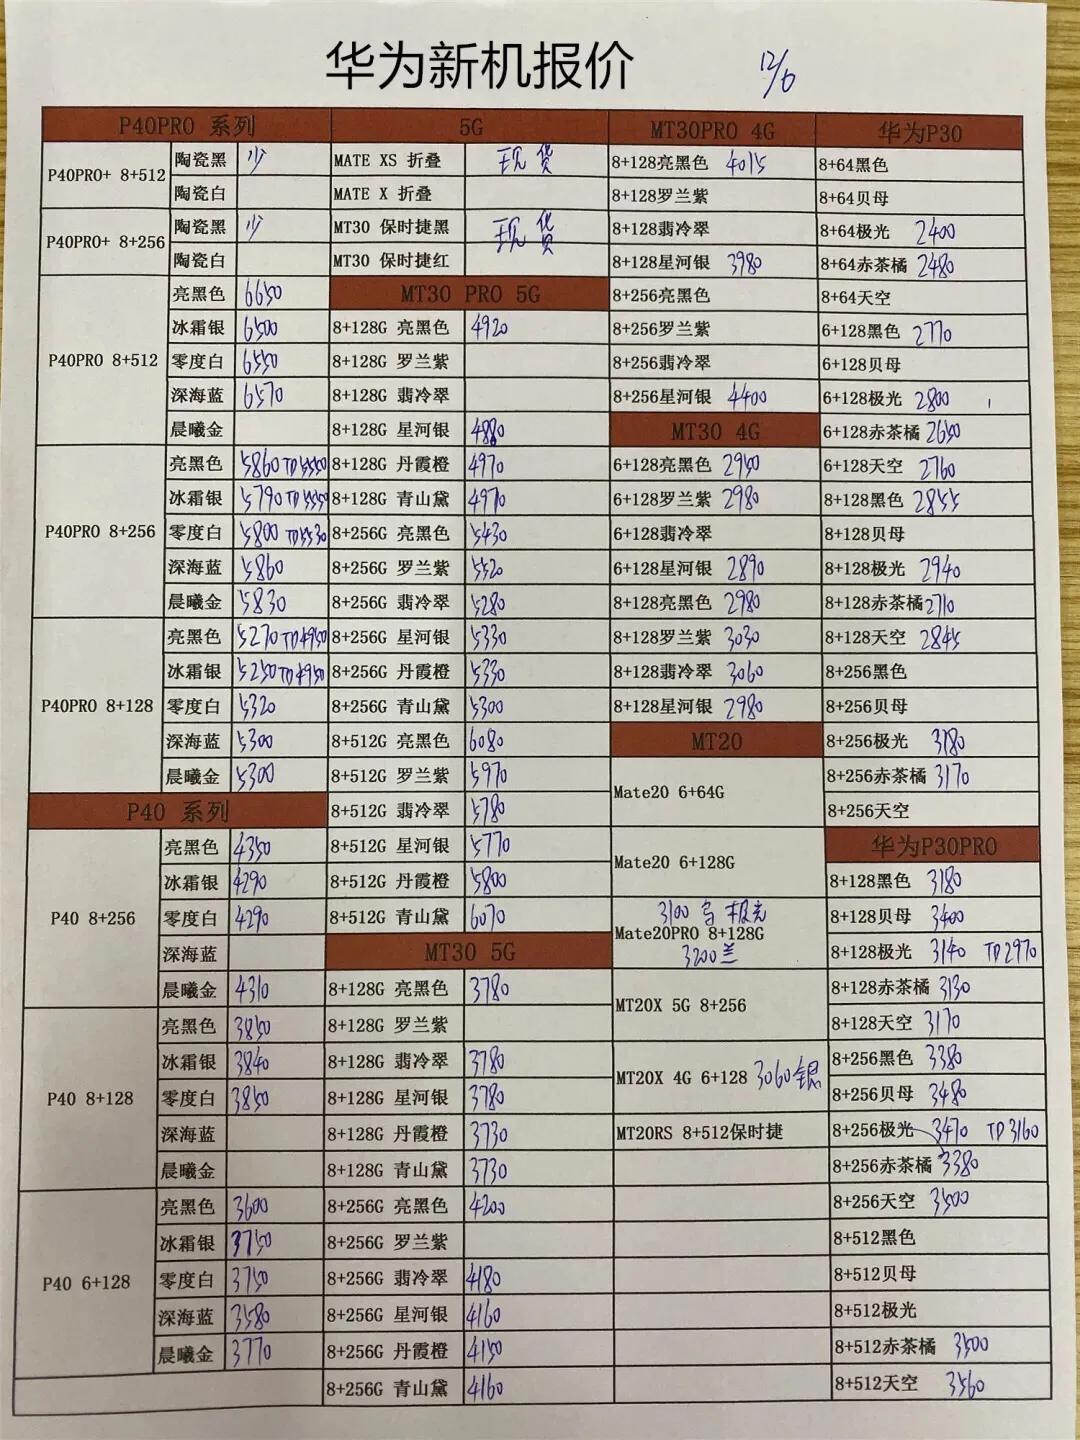 华为新机报价 12/6
P40PRO 系列
P40PRO+ 8+512
陶瓷黑 少
陶瓷白
P40PRO+ 8+256
陶瓷黑 少
陶瓷白
P40PRO 8+512
亮黑色 6650
冰霜银 6500
零度白 6550
深海蓝 6570
晨曦金
P40PRO 8+256
亮黑色 5860 TD5550
冰霜银 5790 TD5550
零度白 5800 TD5530
深海蓝 5860
晨曦金 5830
P40PRO 8+128
亮黑色 5270 TD4950
冰霜银 5250 TD4950
零度白 5320
深海蓝 5300
晨曦金 5300
P40 系列
P40 8+256
亮黑色 4350
冰霜银 4290
零度白 4290
深海蓝
晨曦金 4310
P40 8+128
亮黑色 3850
冰霜银 3840
零度白 3850
深海蓝
晨曦金
P40 6+128
亮黑色 3600
冰霜银 3750
零度白 3750
深海蓝 3580
晨曦金 3770
5G
MATE XS 折叠 现货
MATE X 折叠
MT30 保时捷黑 现货
MT30 保时捷红
MT30 PRO 5G
8+128G 亮黑色 4920
8+128G 罗兰紫
8+128G 翡冷翠
8+128G 星河银 4880
8+128G 丹霞橙 4970
8+128G 青山黛 4970
8+256G 亮黑色 5430
8+256G 罗兰紫 5520
8+256G 翡冷翠 5280
8+256G 星河银 5330
8+256G 丹霞橙 5330
8+256G 青山黛 5300
8+512G 亮黑色 6080
8+512G 罗兰紫 5970
8+512G 翡冷翠 5780
8+512G 星河银 5770
8+512G 丹霞橙 5800
8+512G 青山黛 6070
MT30 5G
8+128G 亮黑色 3780
8+128G 罗兰紫
8+128G 翡冷翠 3780
8+128G 星河银 3780
8+128G 丹霞橙 3730
8+128G 青山黛 3730
8+256G 亮黑色 4200
8+256G 罗兰紫
8+256G 翡冷翠 4180
8+256G 星河银 4160
8+256G 丹霞橙 4150
8+256G 青山黛 4160
MT30PRO 4G
8+128亮黑色 4015
8+128罗兰紫
8+128翡冷翠
8+128星河银 3980
8+256亮黑色
8+256罗兰紫
8+256翡冷翠
8+256星河银 4400
MT30 4G
6+128亮黑色 2950
6+128罗兰紫 2980
6+128翡冷翠
6+128星河银 2890
8+128亮黑色 2980
8+128罗兰紫 3030
8+128翡冷翠 3060
8+128星河银 2980
MT20
Mate20 6+64G
Mate20 6+128G
3100 极光
Mate20PRO 8+128G
3200兰
MT20X 5G 8+256
MT20X 4G 6+128 3060银
MT20RS 8+512保时捷
华为P30
8+64黑色
8+64贝母
8+64极光 2400
8+64赤茶橘 2480
8+64天空
6+128黑色 2770
6+128贝母
6+128极光 2800
6+128赤茶橘 2650
6+128天空 2760
8+128黑色 2855
8+128贝母
8+128极光 2940
8+128赤茶橘 2710
8+128天空 2845
8+256黑色
8+256贝母
8+256极光 3180
8+256赤茶橘 3170
8+256天空
华为P30PRO
8+128黑色 3180
8+128贝母 3400
8+128极光 3140 TD2970
8+128赤茶橘 3130
8+128天空 3170
8+256黑色 3380
8+256贝母 3480
8+256极光 3470 TD3160
8+256赤茶橘 3380
8+256天空 3500
8+512黑色
8+512贝母
8+512极光
8+512赤茶橘 3500
8+512天空 3560